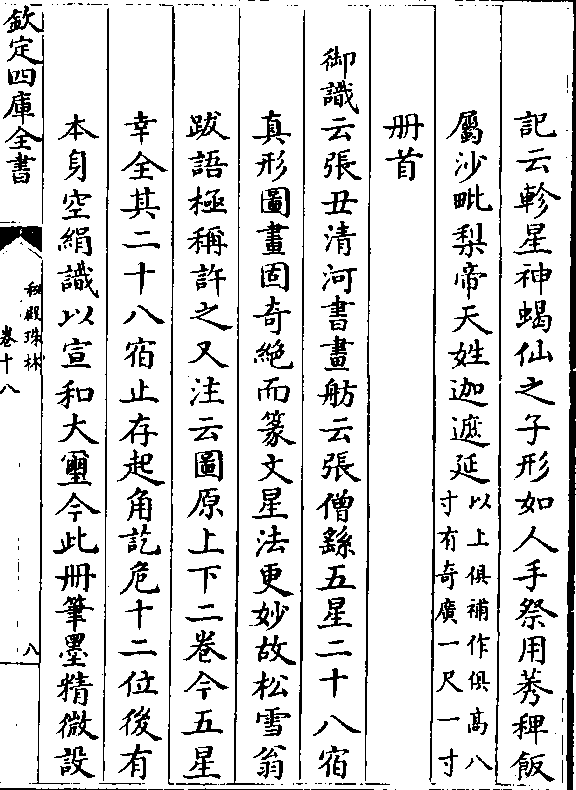 記云軫星神蝎仙之子形如人手祭用莠稗飯
屬沙毗梨帝天姓迦遮延以上俱補作俱高八
寸有奇廣一尺一寸
冊首
御識云張丑清河書畫舫云張僧繇五星二十八宿
真形圖畫固奇絶而篆文星法更妙故松雪翁
跋語極稱許之又注云圖原上下二卷今五星
幸全其二十八宿止存起角訖危十二位後有
本身空絹識以宣和大璽今此冊筆墨精微設
欽定四庫全書
秘殿珠林
卷十八
八